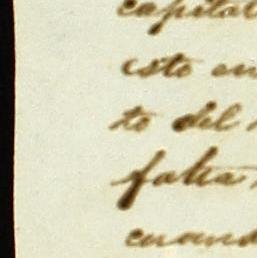 capital
esto en
to del
falta
cuando